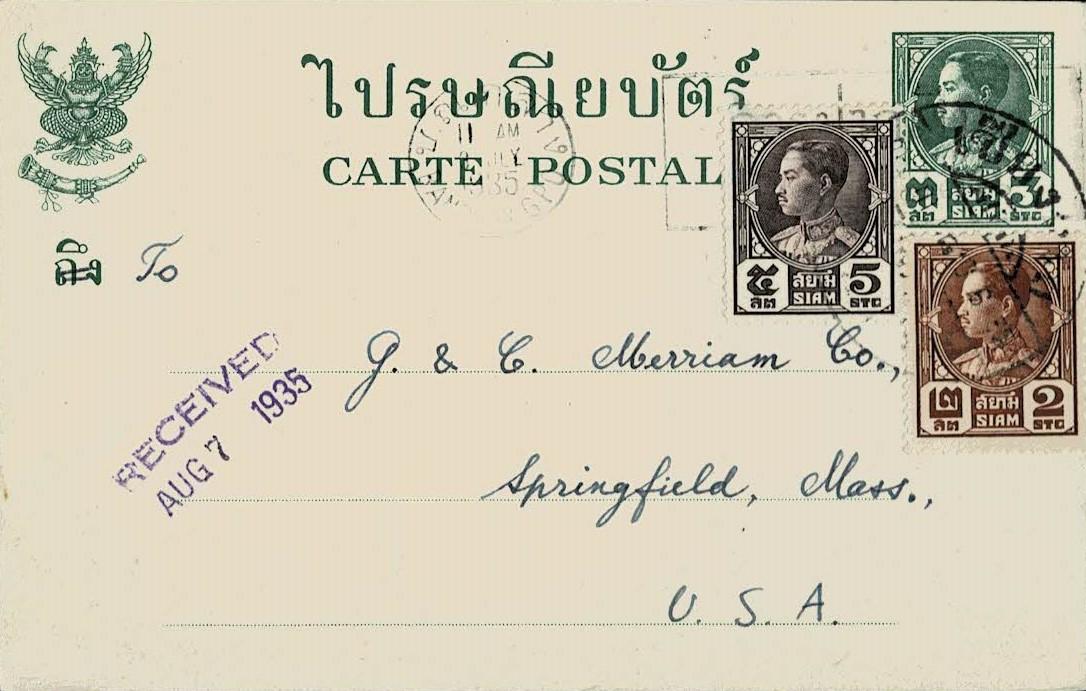 ไปรษณียบัตร์
CARTE POSTALE
11 AM
JULY
1935
๓ สยาม 3
สต. SIAM STG
๕ สยาม 5
สต SIAM STG
๒ สยาม 2
สต SIAM STG
ถึง To
G. & C. Merriam Co.,
RECEIVED
AUG 7 1935
Springfield, Mass.,
U. S. A.